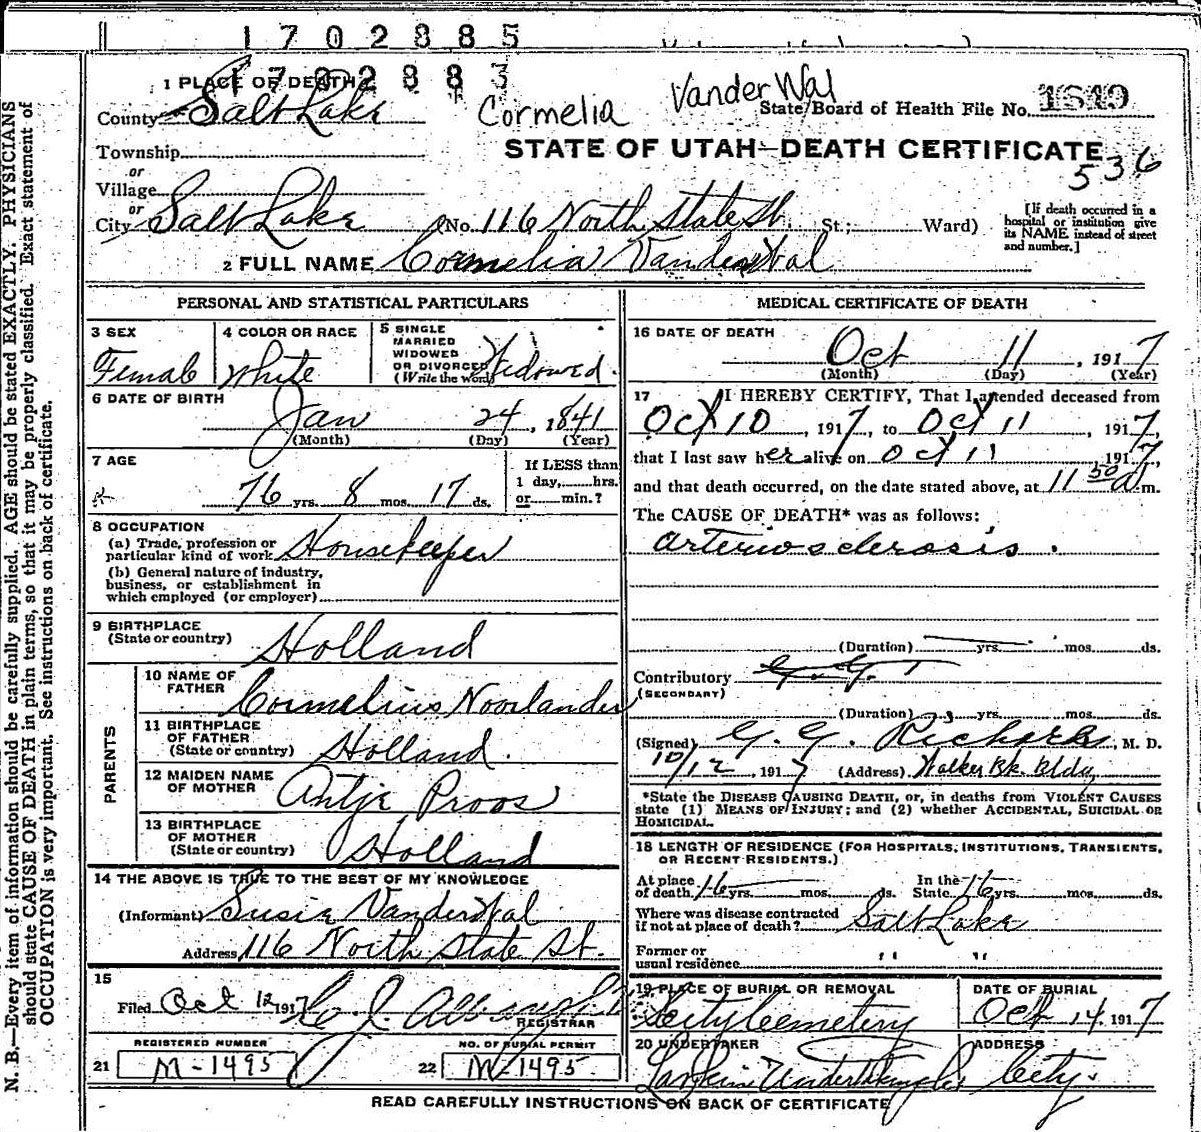 1702885
1702883
1 PLACE OF DEATH
Cormelia VanderWal
State Board of Health File No. 1849
County Salt Lake
STATE OF UTAH—DEATH CERTIFICATE
536
Township
or
Village
or
City Salt Lake No. 116 North State St. St; Ward)
[If death occurred in a hospital or institution give its NAME instead of street and number.]
2 FULL NAME Cornelia VanderWal
PERSONAL AND STATISTICAL PARTICULARS
3 SEX Female
4 COLOR OR RACE White
5 SINGLE MARRIED WIDOWED OR DIVORCED (Write the word) Widowed.
6 DATE OF BIRTH
Jan 24, 1841
(Month) (Day) (Year)
7 AGE
76 yrs. 8 mos. 17 ds.
If LESS than 1 day, hrs. or min.?
8 OCCUPATION
(a) Trade, profession or particular kind of work Housekeeper
(b) General nature of industry, business, or establishment in which employed (or employer)
9 BIRTHPLACE
(State or country) Holland
PARENTS
10 NAME OF FATHER Cornelius Noorlander
11 BIRTHPLACE OF FATHER (State or country) Holland.
12 MAIDEN NAME OF MOTHER Antje Proos
13 BIRTHPLACE OF MOTHER (State or country) Holland
14 THE ABOVE IS TRUE TO THE BEST OF MY KNOWLEDGE
(Informant) Susie VanderWal
Address 116 North State St.
15
Filed Oct 12 1917
REGISTRAR
REGISTERED NUMBER
21 M-1495
NO. OF BURIAL PERMIT
22 M-1495
MEDICAL CERTIFICATE OF DEATH
16 DATE OF DEATH
Oct 11, 1917
(Month) (Day) (Year)
17 I HEREBY CERTIFY, That I attended deceased from
Oct 10, 1917, to Oct 11, 1917,
that I last saw her alive on Oct 11 1917,
and that death occurred, on the date stated above, at 11 50 a m.
The CAUSE OF DEATH* was as follows:
Arteriosclerosis.
(Duration) yrs. mos. ds.
Contributory
(SECONDARY)
(Duration) yrs. mos. ds.
(Signed) G. G. Richards, M. D.
10/12, 1917 (Address) Walker Bk. Bldg
*State the DISEASE CAUSING DEATH, or, in deaths from VIOLENT CAUSES
state (1) MEANS OF INJURY; and (2) whether ACCIDENTAL, SUICIDAL OR
HOMICIDAL.
18 LENGTH OF RESIDENCE (FOR HOSPITALS, INSTITUTIONS, TRANSIENTS,
OR RECENT RESIDENTS.)
At place of death 16 yrs. mos. ds. In the State 16 yrs. mos. ds.
Where was disease contracted if not at place of death? Salt Lake
Former or usual residence " "
19 PLACE OF BURIAL OR REMOVAL
City Cemetery
DATE OF BURIAL
Oct 14, 1917
20 UNDERTAKER
Larkin Undertaking Co
ADDRESS
City.
READ CAREFULLY INSTRUCTIONS ON BACK OF CERTIFICATE
N. B.—Every item of information should be carefully supplied. AGE should be stated EXACTLY. PHYSICIANS
should state CAUSE OF DEATH in plain terms, so that it may be properly classified. Exact statement of
OCCUPATION is very important. See instructions on back of certificate.